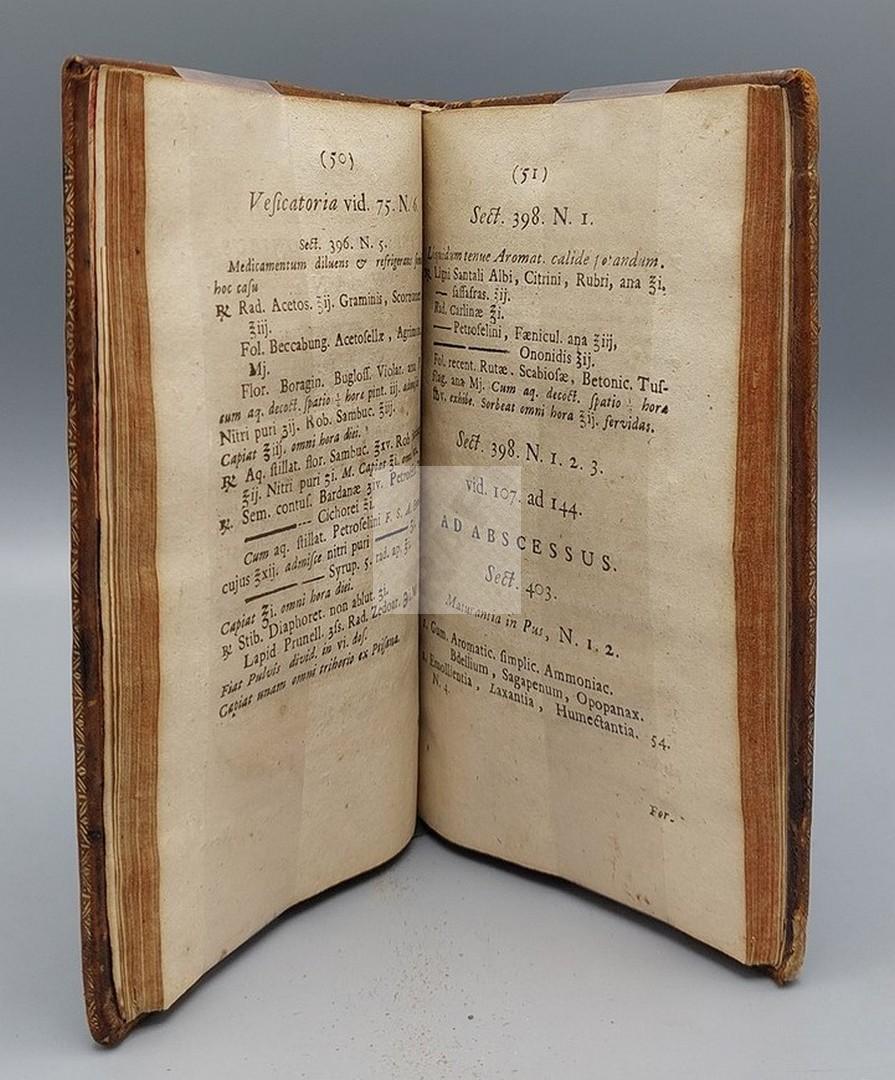 (50)
Veſicatoria vid. 75. N. 6.
Sect. 396. N. 5.
Medicamentum diluens & refrigerans
hoc caſu
℞ Rad. Acetos. ʒij. Graminis, Scorzoner
℥iij.
Fol. Beccabung. Acetoſellæ, Agrimon.
Mj.
Flor. Boragin. Bugloſſ. Violar. ana
cum aq. decoct. ſpatio ½ horæ pint. iij. admiſce
Nitri puri ʒij. Rob. Sambuc. ℥iij.
Capiat ℥iij. omni hora diei.
℞ Aq. ſtillat. flor. Sambuc. ℥xv. Rob
℥ij. Nitri puri ʒi. M. Capiat ℥i. omni
℞ Sem. contuſ. Bardanæ ʒiv. Petroſel
—— Cichorei ℥i.
Cum aq. ſtillat. Petroſelini F. S. A.
cujus ℥xij. admiſce nitri puri —— ʒi.
—— — Syrup. 5. rad. ap. ℥i.
Capiat ℥i. omni hora diei.
℞ Stib. Diaphoret. non ablut. ʒi.
Lapid Prunell. ʒſs. Rad. Zedoar.
Fiat Pulvis divid. in vi. doſ.
Capiat unam omni trihorio ex Ptiſana.
(51)
Sect. 398. N. 1.
tenue Aromat. calide potandum.
℞ Ligni Santali Albi, Citrini, Rubri, ana ℥i.
— ſaſſafras. ℥ij.
Rad. Carlinæ ℥i.
— Petroſelini, Fænicul. ana ℥iij,
—— —— Ononidis ℥ij.
Fol. recent. Rutæ. Scabioſæ, Betonic. Tuſ-
ſilag. ana Mj. Cum aq. decoct. ſpatio ½ horæ
exhibe. Sorbeat omni hora ℥ij. fervidas.
Sect. 398. N. 1. 2. 3.
vid. 107. ad 144.
AD ABSCESSUS.
Sect. 403.
Maturantia in Pus, N. 1. 2.
1. Gum. Aromatic. ſimplic. Ammoniac.
Bdellium, Sagapenum, Opopanax.
2. Emollientia, Laxantia, Humectantia. 54.
N. 4.
For-